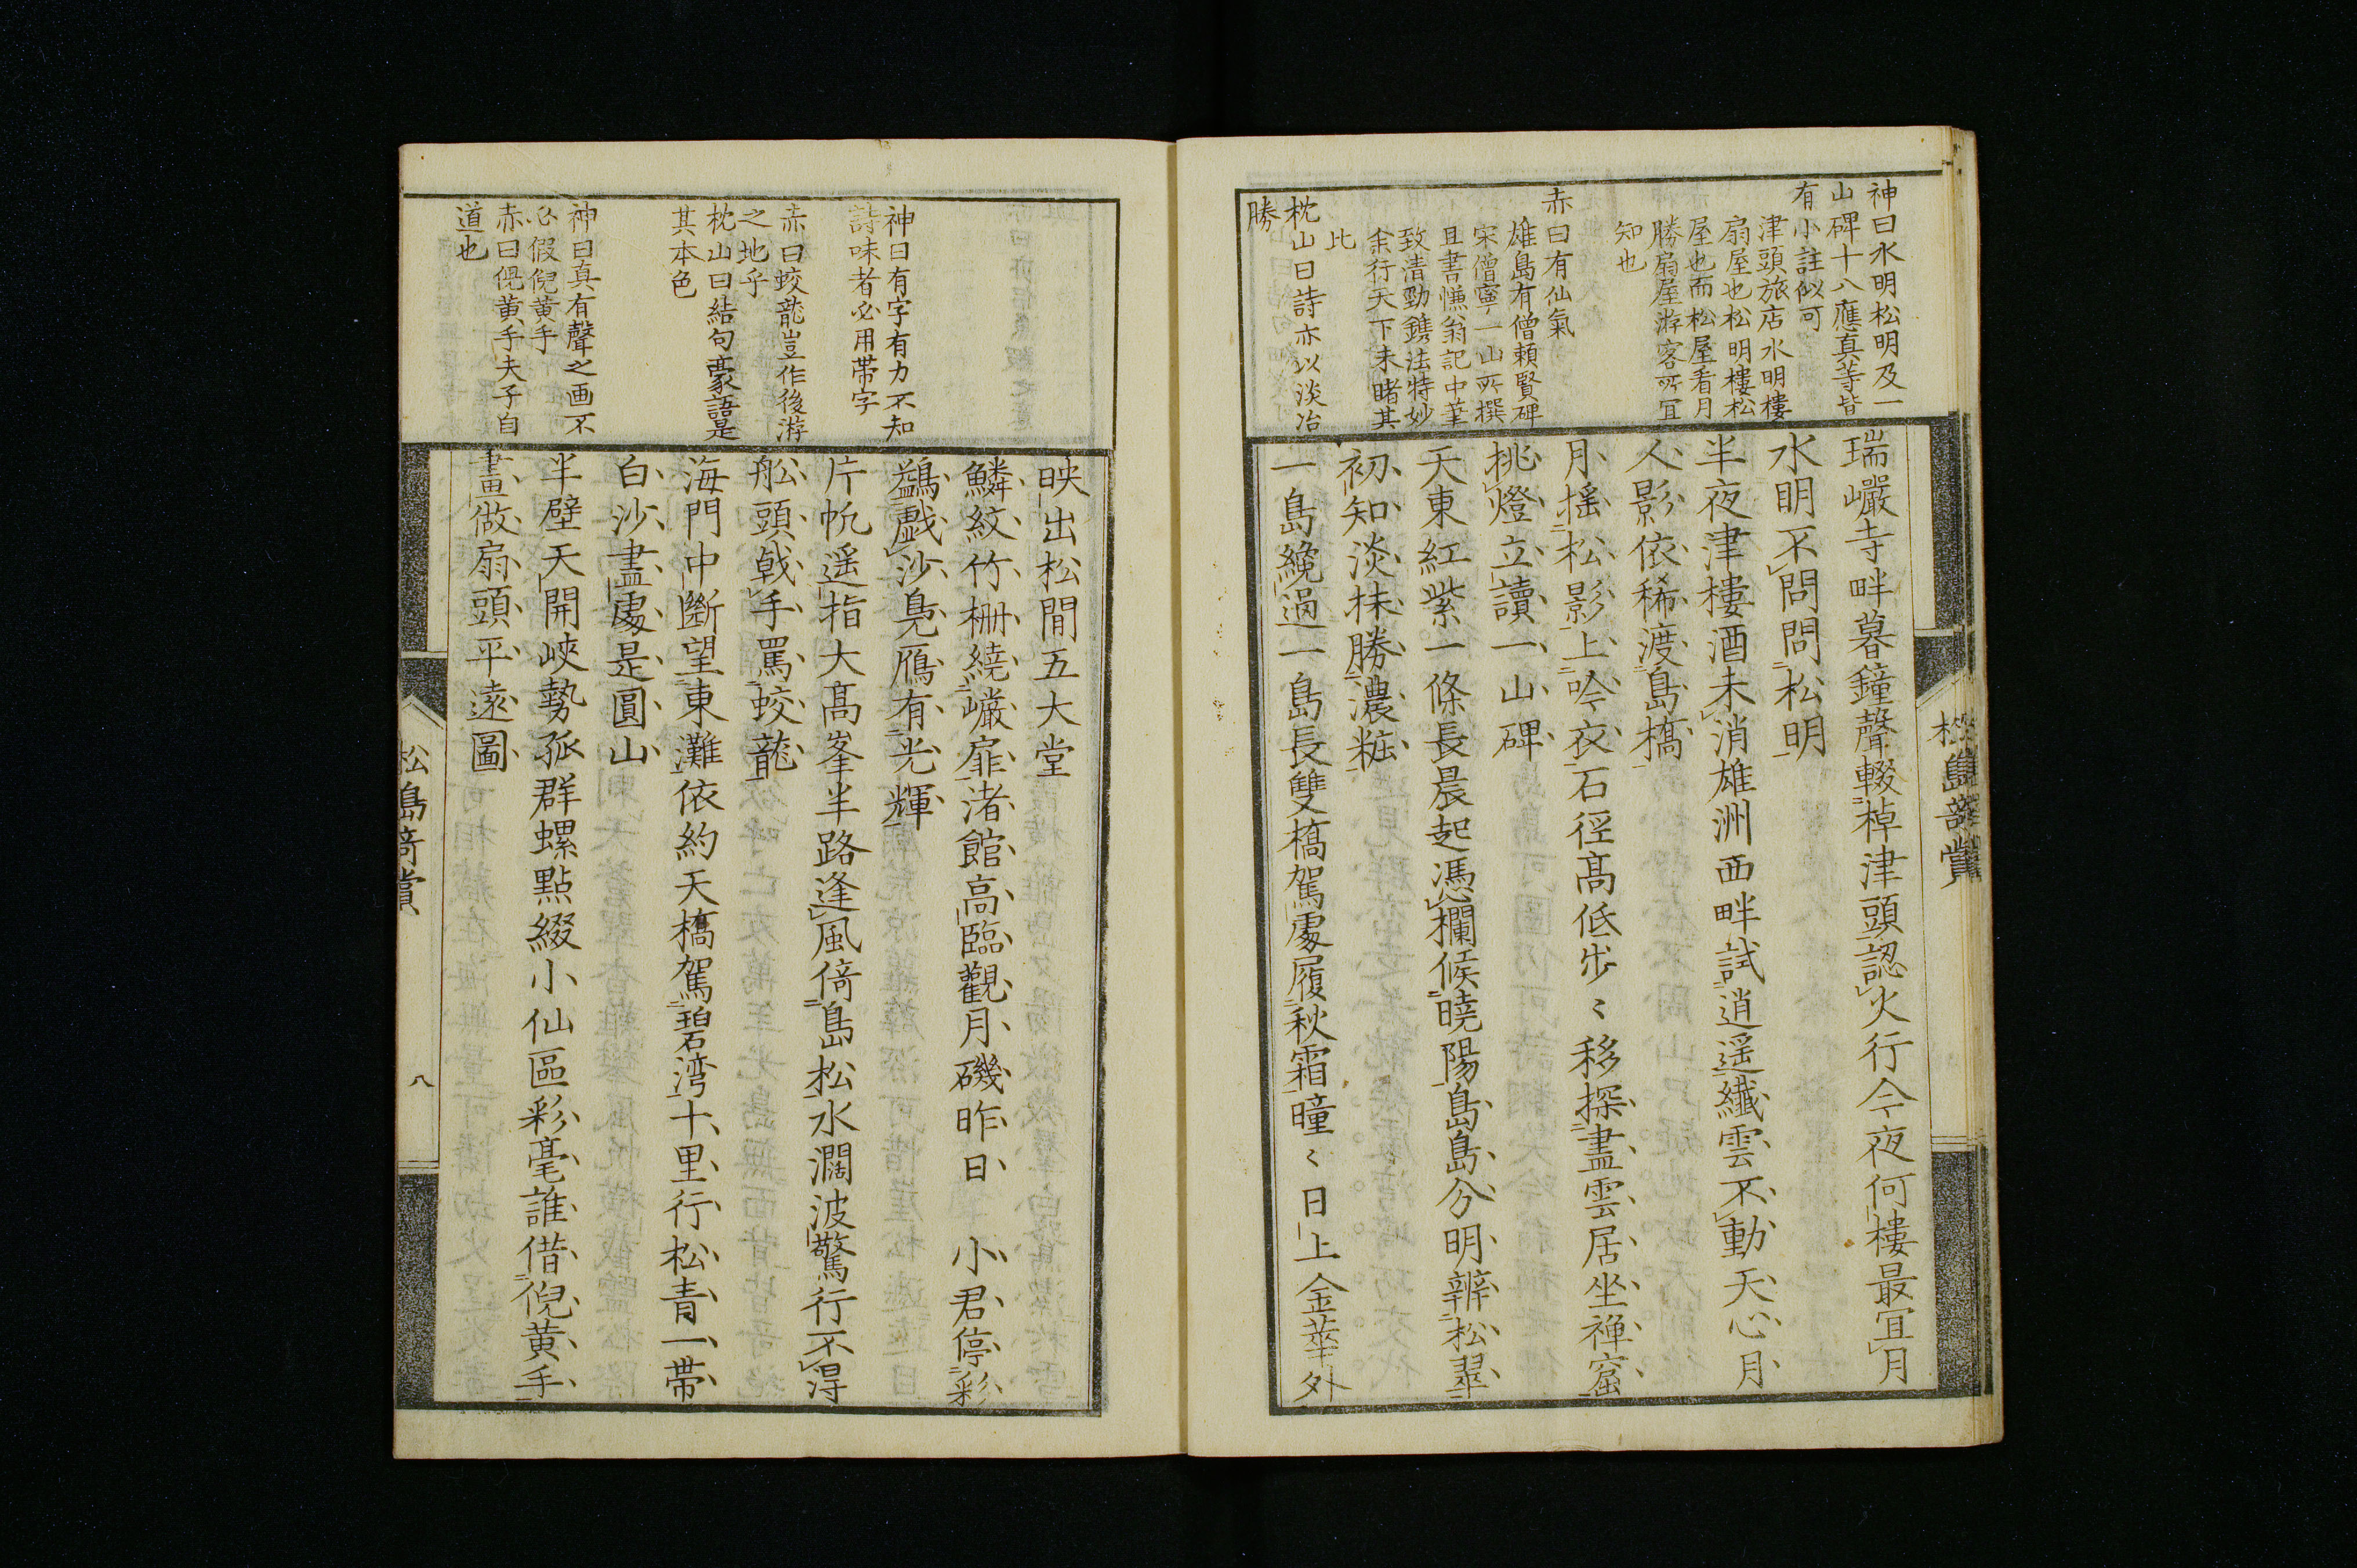 神曰水明松明及一
山碑十八應真等皆
有小註似可
津頭旅店水明樓
扇屋也松明樓松
屋也而松屋看月
勝扇屋游客所宜
知也
赤曰有仙氣
雄島有僧賴賢碑
宋僧寧一山所撰
且書慊翁記中筆
致清勁鐫法特妙
余行天下未睹其
比
枕山曰詩亦以淡冶
勝
瑞巖寺畔暮鐘聲輟棹津頭認火行今夜何樓最宜月
水明不問問松明
半夜津樓酒未消雄洲西畔試逍遥纖雲不動天心月
人影依稀渡島橋
月搖松影上吟衣石徑高低步〻移探盡雲居坐禪窟
挑燈立讀一山碑
天東紅紫一條長晨起憑欄候曉陽島島分明辨松翠
初知淡抹勝濃粧
一島纔過一島長雙橋駕處履秋霜曈〻日上金華外
松島奇賞
神曰有字有力不知
詩味者必用帶字
赤曰蛟龍豈作後游
之地乎
枕山曰結句豪語是
其本色
神曰真有聲之画不
必假倪黄手
赤曰倪黄手夫子自
道也
映出松間五大堂
鱗紋竹柵繞巖扉渚館高臨觀月磯昨日小君停彩
鷁戲沙鳧雁有光輝
片帆遥指大高峯半路逢風倚島松水濶波驚行不得
舩頭戟手罵蛟龍
海門中斷望東灘依約天橋駕碧湾十里行松青一帶
白沙盡處是圓山
半壁天開峽勢孤群螺點綴小仙區彩毫誰借倪黄手
畫做扇頭平遠圖
松島奇賞
八